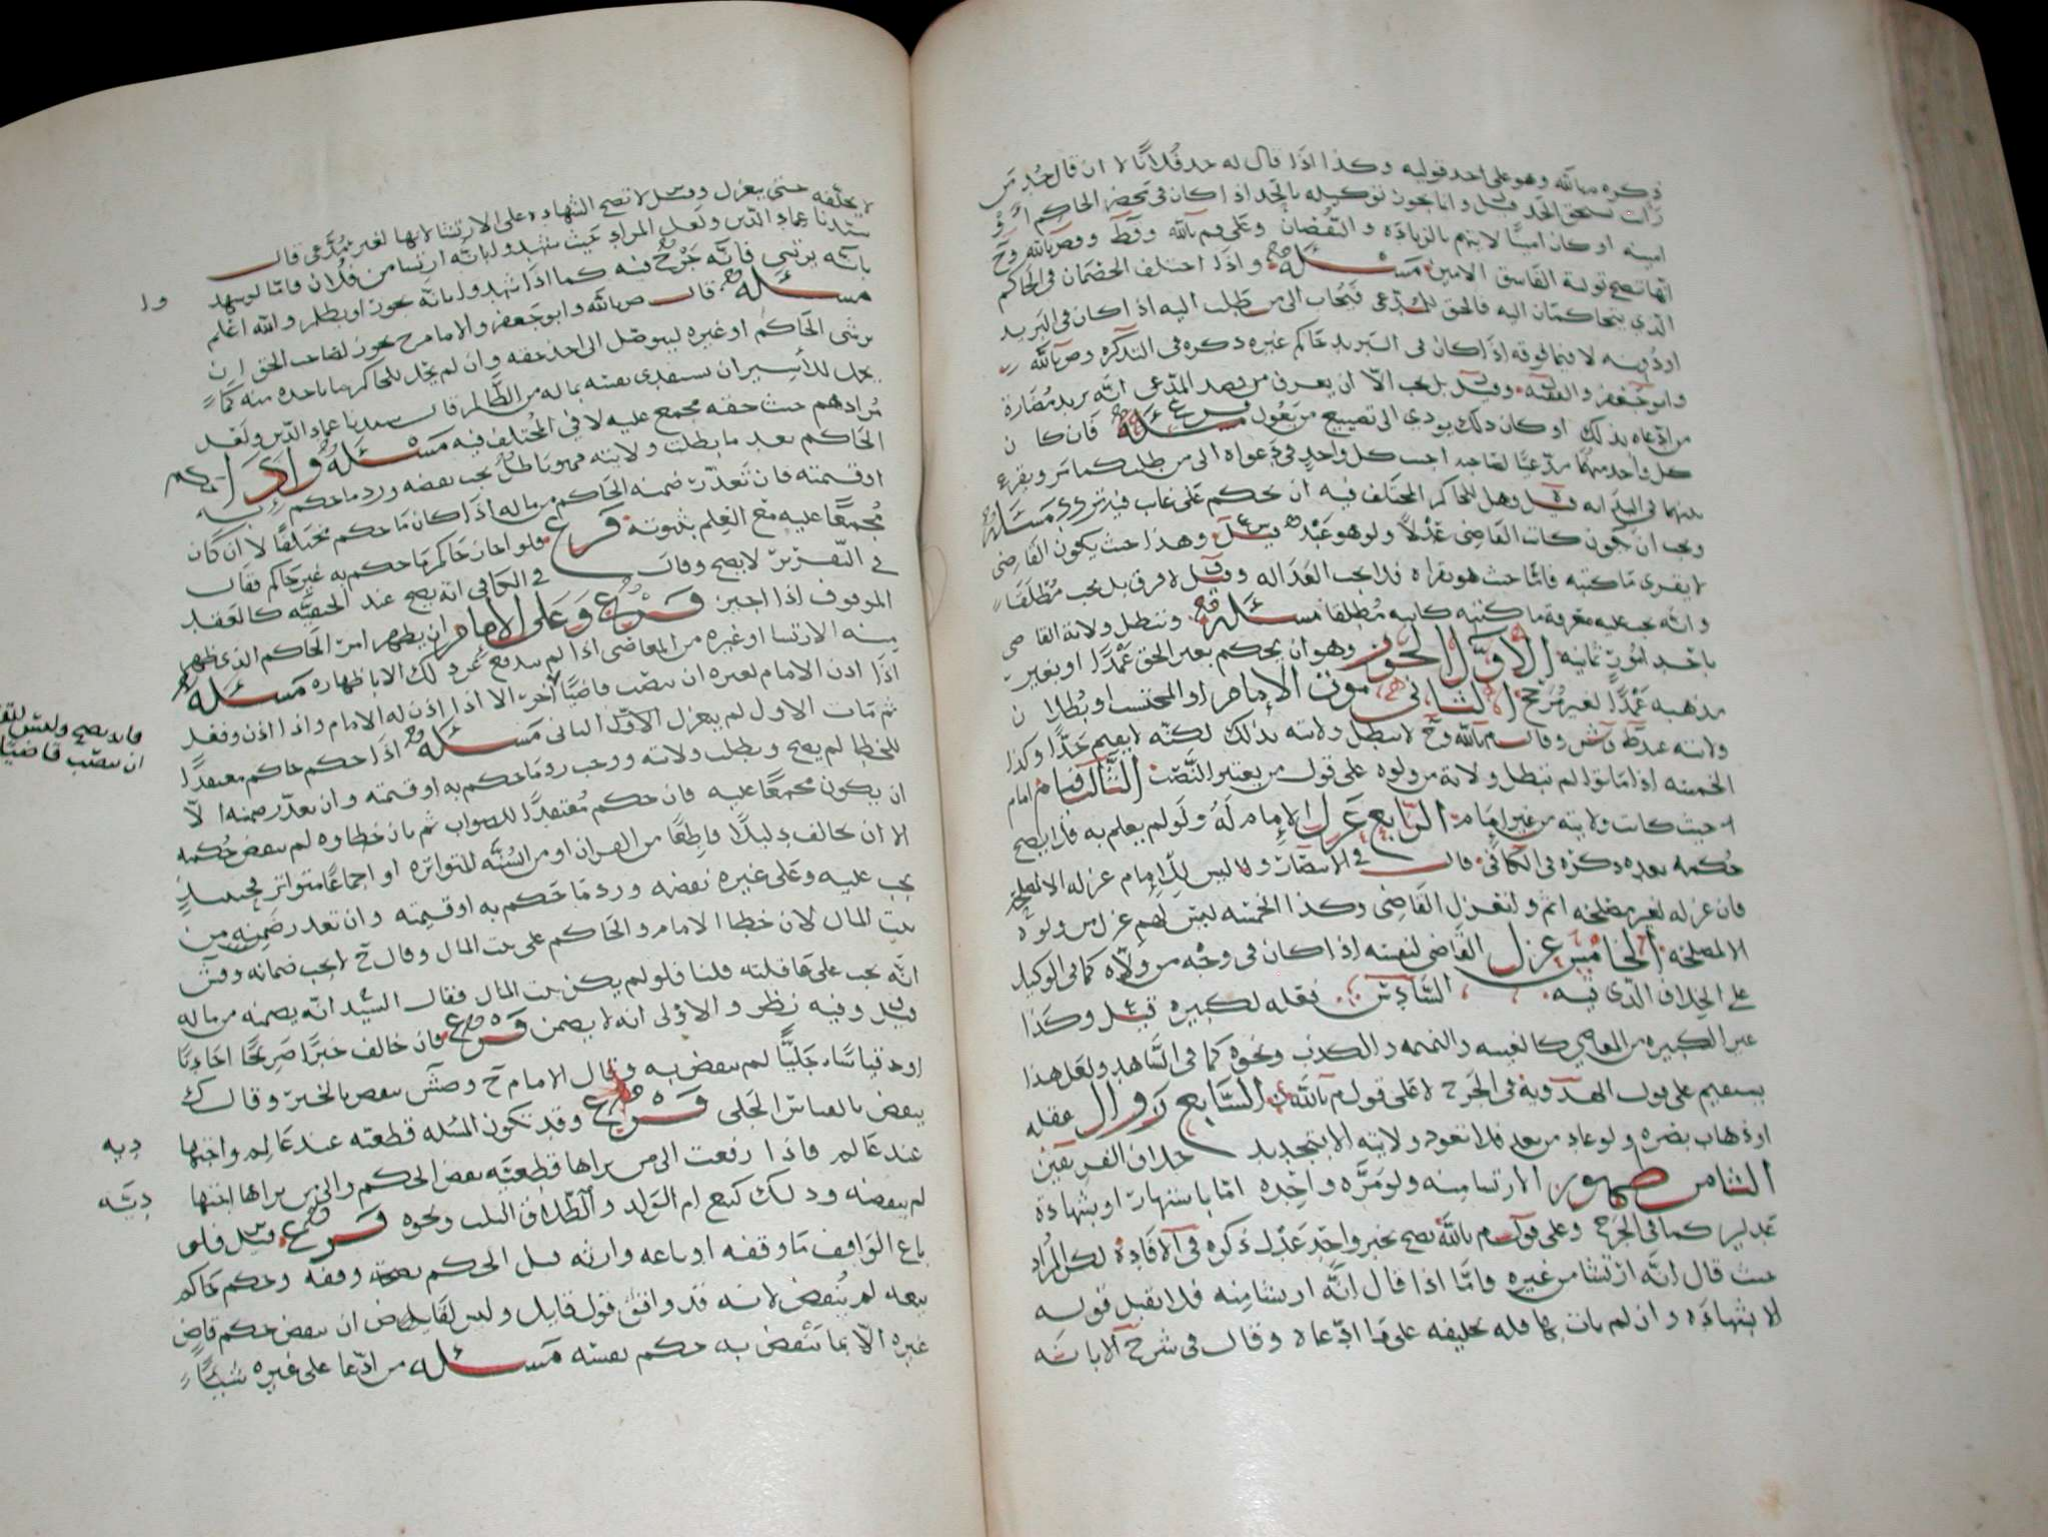 ذكره م بالله وهو على احد قوليه وكذا اذا قال له حد فلانا لا ان قال حد من
رأيت يستحق الحد قيل وانما يجوز توكيله بالحد اذا كان في محضر الحاكم او
امينه او كان امينا لا يتهم بالزياده والنقصان وعلى قول م بالله
انها تصح تولية الفاسق الامين مسئله واذا اختلف الخصمان في الحاكم
الذي يتحاكمان اليه فالحق للمدعي فيجاب الى من طلب اليه اذا كان في البريد
او دونه لا فيما فوقه اذا كان في البريد حاكم غيره ذكره في التذكره وص بالله
وابو جعفر والفقيه وقيل بل يجب الا ان يعرف من قصد المدعي انه يريد مضارة
من ادعاه بذلك او كان ذلك يودي الى تضييع من يعول فرع فان كان
كل واحد منهما مدعيا لصاحبه اجيب كل واحد في دعواه الى من طلب كما مر ويقرع
بينهما في البدايه قيل وهل للحاكم المختلف فيه ان يحكم على غايب فيه تردد مسئله
ويجب ان يكون كاتب القاضي عدلا ولو هو عبد قيل وهذا حيث يكون القاضي
لا يقرى ما كتبه فاما حيث هو يقراه فلا يجب العداله وقيل لا فرق بل يجب مطلقا
وانه يجب عليه معرفة ما كتبه كاتبه مطلقا مسئله وتبطل ولاية القاضي
باحد امور ثمانيه الاول الجور وهو ان يحكم بغير الحق عمدا او بغير
مذهبه عمدا لغير مرجح الثاني موت الامام او المحتسب او بطلان
ولايته عند ط وش وقال م بالله وح لا تبطل ولايته بذلك لكنه لا يقيم حدا وكذا
الخمسه اذا ماتوا لم تبطل ولاية من ولوه على قول من يعتبر النصب الثالث قيام امام
حيث كانت ولايته من غير امام الرابع عزل الامام له ولو لم يعلم به فلا يصح
حكمه بعده ذكره في الكافي قال في الانتصار ولا ليس للامام عزله الا لمصلحة
فان عزله لغير مصلحه اثم وانعزل القاضي وكذا الخمسه ليس لهم عزل من ولوه
الا لمصلحه الخامس عزل القاضي لنفسه اذا كان في وجه من ولاه كما في الوكيل
على الخلاف الذي فيه السادس فعله لكبيره قيل وكذا
غير الكبيره من المعاصي كالغيبه والنميمه والكذب ونحوه كما في الشاهد ولعل هذا
يستقيم على قول الهدويه في الجرح لا على قول م بالله السابع زوال عقله
او ذهاب بصره ولو عاد من بعد فلا تعود ولايته الا بتجديد خلاف الفريقين
الثامن ظهور الارتشا منه ولو مره واحده اما باشتهار او بشهادة
عدلين كما في الجرح وعلى قول م بالله يصح بخبر واحد عدل ذكره في الافاده لكن المراد
حيث قال انه ارتشا من غيره فاما اذا قال انه ارتشا منه فلا تقبل قوله
الا بشهاده وان لم يات بها فله تحليفه على ما ادعاه وقال في شرح الابانه
لا يحلفه حتى يعزل وقيل لا تصح الشهاده على الارتشا لانها لغير مدعي قال
سيدنا عماد الدين ولعل المراد حيث شهدوا بانه ارتشا من فلان فاما لو شهد وا
بانه يرتشي فانه جرح فيه كما اذا شهدوا بانه يجور او يظلم والله اعلم
مسئله قال ص بالله وابو جعفر والامام ح يجوز لصاحب الحق ان
يرشي الحاكم او غيره ليتوصل الى اخذ حقه وان لم يحل للحاكم ما ياخذه منه كما
يحل للاسير ان يستفدي نفسه بماله من الظالم قال سيدنا عماد الدين ولعل
مرادهم حيث حقه مجمع عليه لا في المختلف فيه مسئله واذا حكم
الحاكم بعد ما بطلت ولايته فهو باطل يجب نقضه ورد ما حكم به
او قيمته فان تعذر ضمنه الحاكم من ماله اذا كان ما حكم مختلفا لا ان كان
مجمعا عليه مع العلم بثبوته فرع فلو اجاز حاكم ما حكم به غير حاكم فقال
في التقرير لا يصح وقال في الكافي انه يصح عند الحنفيه كالعقد
الموقوف اذا اجيز فرع وعلى الامام ان يظهر امر الحاكم الذي ظهر
منه الارتشا او غيره من المعاصي اذا لم يندفع غرر ذلك الا باظهاره مسئله
اذا اذن الامام لغيره ان ينصب قاضيا اخر الا اذا اذن له الامام واذا اذن وفعل
فانه يصح وليس للقا
ان ينصب قاضيا
ثم مات الاول لم ينعزل الاول الثاني مسئله اذا حكم حاكم معتقدا
للخطا لم يصح وبطلت ولايته ووجب رد ما حكم به او قيمته وان تعذر ضمنه الا
ان يكون مجمعا عليه فان حكم معتقدا للصواب ثم بان خطاوه لم ينقض حكمه
الا ان يخالف دليلا قاطعا من القران او من السنه المتواتره او اجماعا متواتر فحينئذ
يجب عليه وعلى غيره نقضه ورد ما حكم به او قيمته وان تعذر ضمنه من
بيت المال لان خطا الامام والحاكم على بيت المال وقال ح لا يجب ضمانه وقش
انه يجب على عاقلته قلنا فلو لم يكن بيت المال فقال السيد انه يضمنه من ماله
قيل وفيه نظر والاولى انه لا يضمن فرع فان خالف خبرا صريحا احاديا
او قياسا جليا لم ينقض به وقال الامام ح وص ش ينقض بالخبر وقال ك
ينقض بالقياس الجلي فرع وقد تكون المسئله قطعيه عند عالم واجتهاديه
عند عالم فاذا رفعت الى من يراها قطعيه نقض الحكم والى من يراها اجتهاديه
لم ينقضه وذلك كبيع ام الولد والطلاق الثلاث ونحوه فرع قيل فلو
باع الواقف ما وقفه او باعه وارثه قبل الحكم بصحة وقفه وحكم حاكم
ببيعه لم ينقض لانه قد وافق قول قايل وليس لقاض ان ينقض حكم قاض
غيره الا بما ينقض به حكم نفسه مسئله من ادعا على غيره شيئا